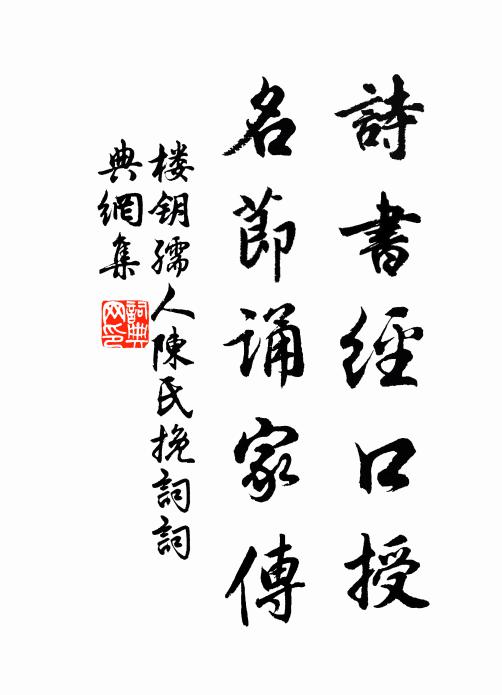 詩書經口授
名節誦家傳
楼钥孺人陳氏挽詞詞
典網集
詞典网印